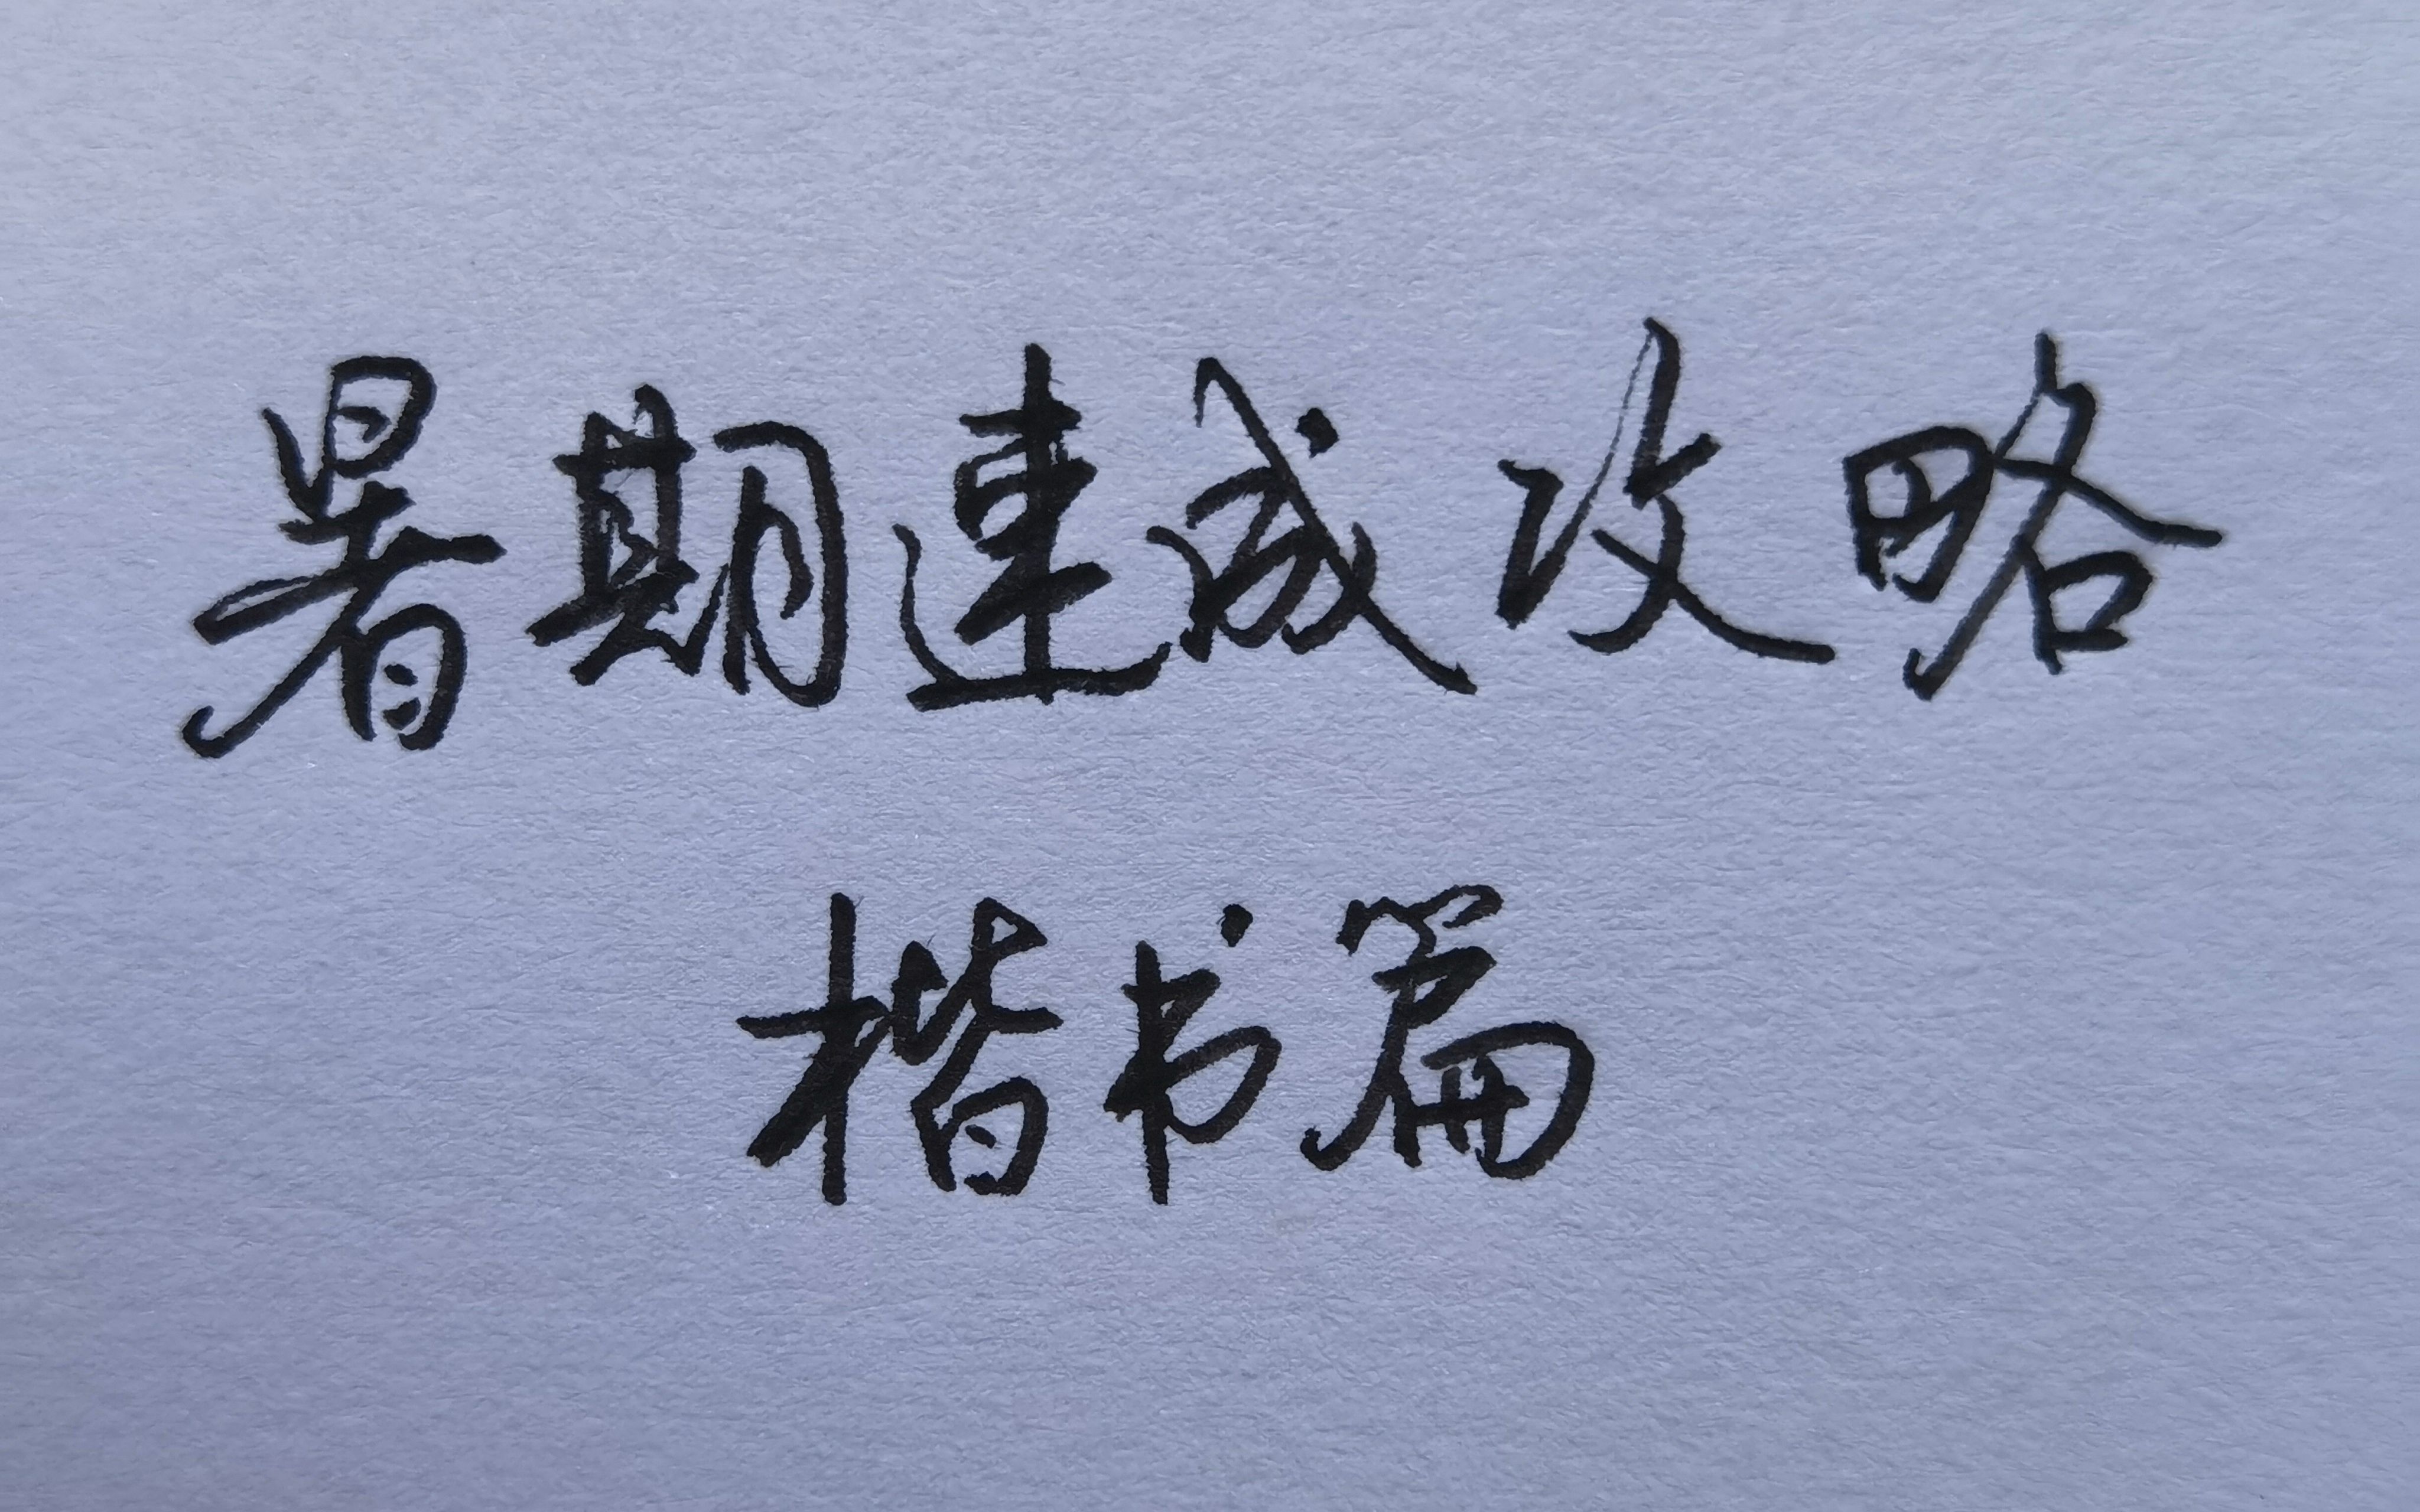 暑期速成攻略
楷书篇